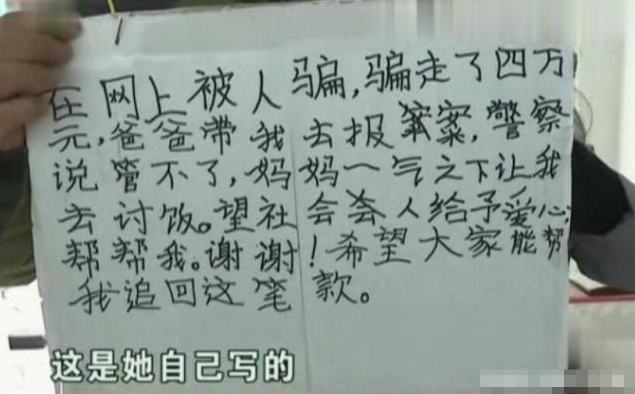 在网上被人骗,骗走了四万
元,爸爸带我去报案,警察
说管不了,妈妈一气之下让我
去讨饭。望社会会人给予爱心;
帮帮我。谢谢!希望大家能帮
我追回这笔款。
这是她自己写的